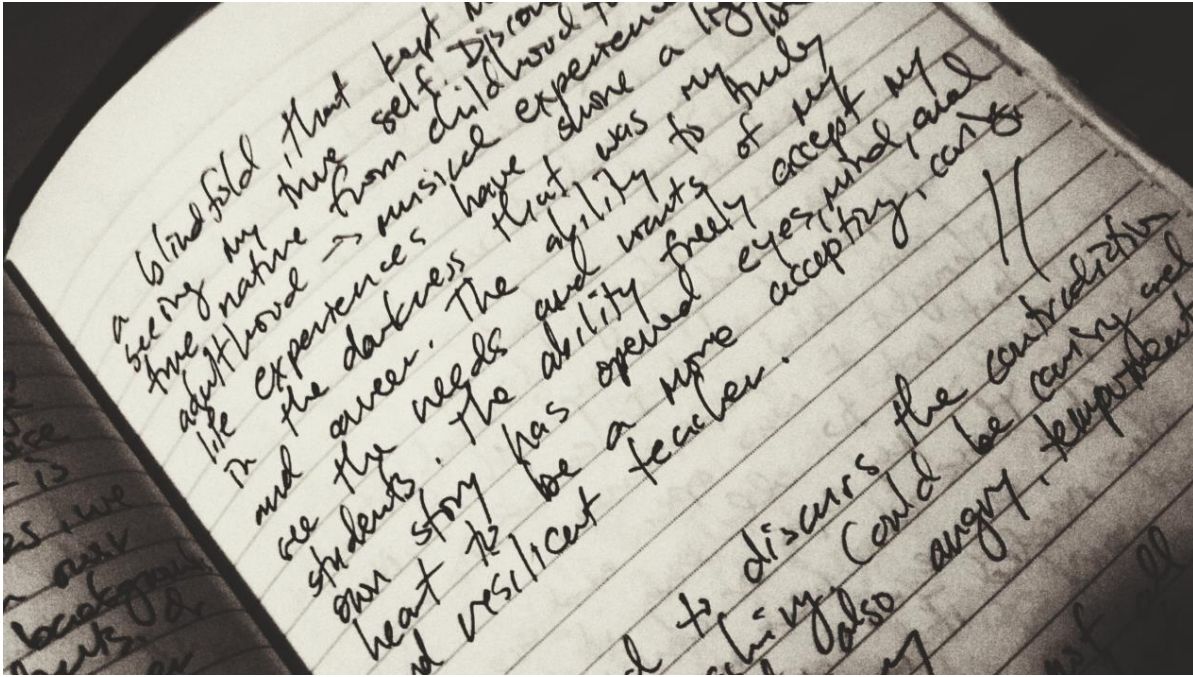 use
is
, we
our
background
a blindfold, that kept
seeing my true self. Discon
true nature from childhood
adulthood → musical experience
life experiences have shone a
in the darkness that was my
and career. The ability to truly
see the needs and wants of my
students. The ability freely accept my
own story has opened eyes, mind, and
heart to be a more accepting, caring,
and resilient teacher. //
to discuss the contradiction
Could be caring and
also angry, temperment
of all